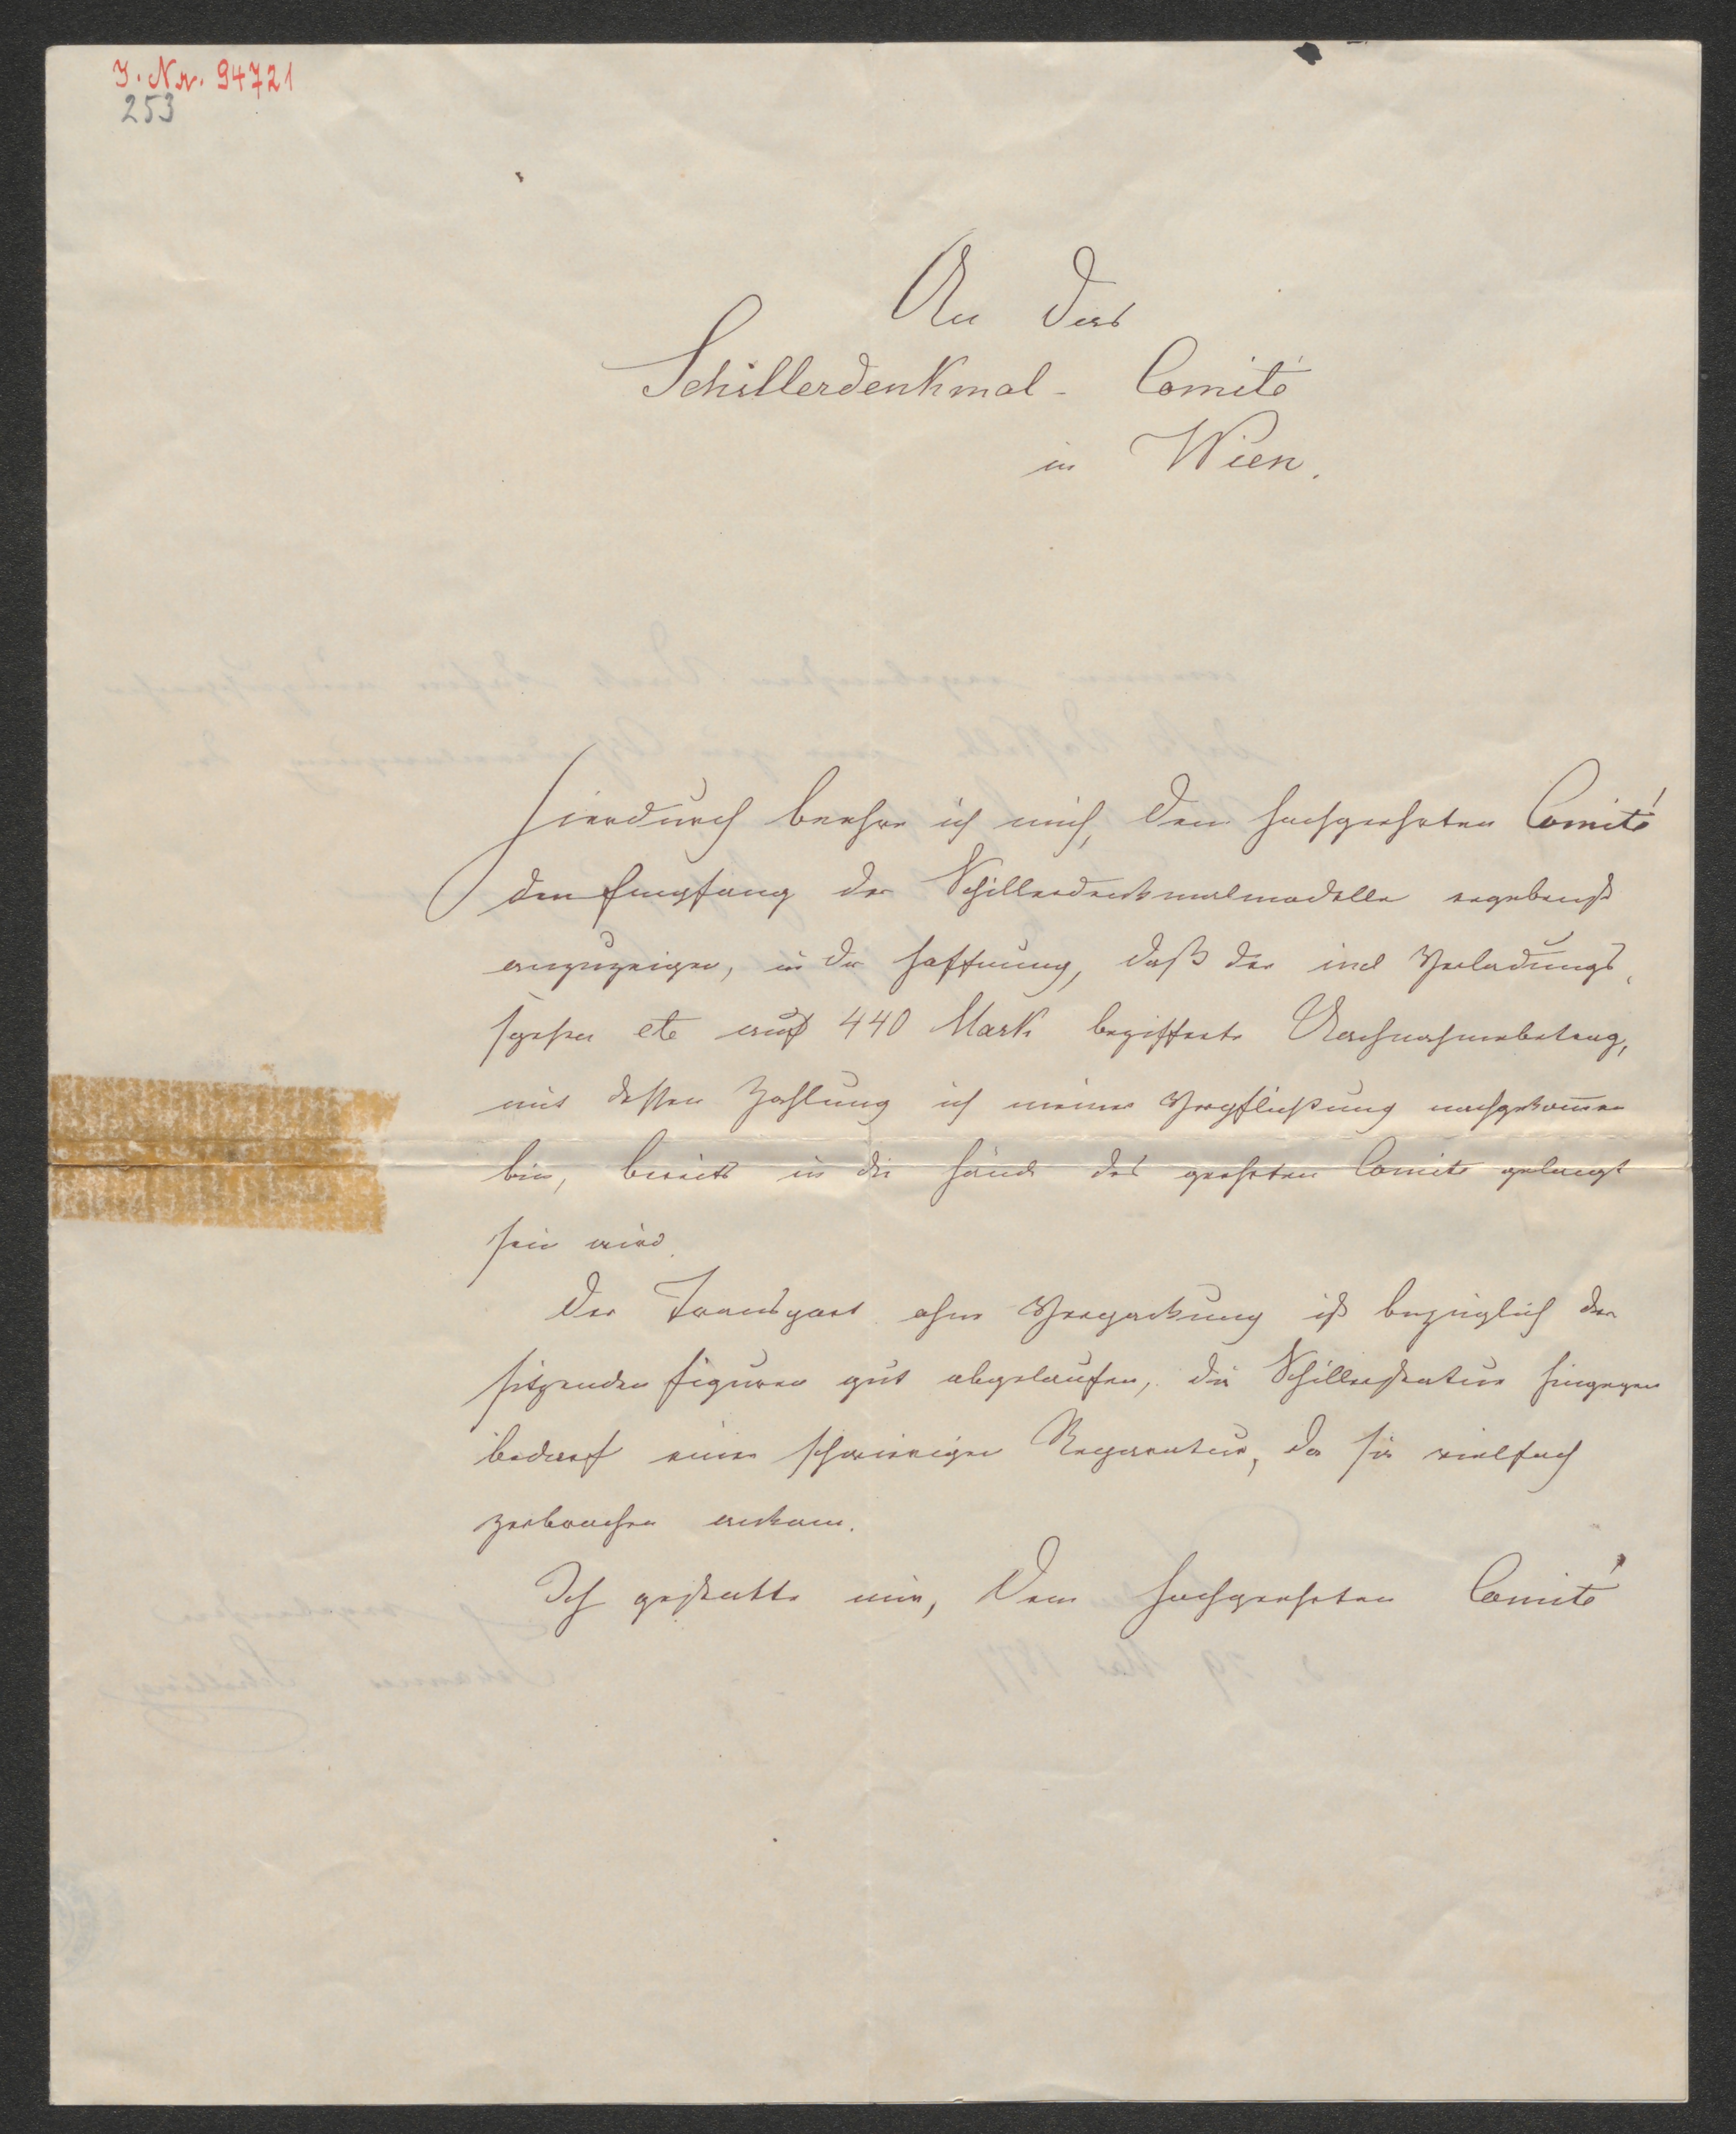 J. Nr. 94721
253
An das
Schillerdenkmal - Comité
in Wien.
Hierdurch beehre ich mich, dem hochgeehrten Comité
den Empfang der Schillerdenkmalmodelle ergebenst
anzuzeigen, in der Hoffnung, daß der incl Verladungs,
spesen etc auf 440 Mark bezifferte Nachnahmebetrag,
mit dessen Zahlung ich meiner Verpflichtung nachgekom̅en
bin, bereits in die Hände des geehrten Comité gelangt
sein wird.
Der Transport ohne Verpackung ist bezüglich der
sitzenden Figuren gut abgelaufen, die Schillerstatue hingegen
bedarf einer schwierigen Reparatur, da sie vielfach
zerbrochen ankam.
Ich gestatte mir, dem hochgeehrten Comité